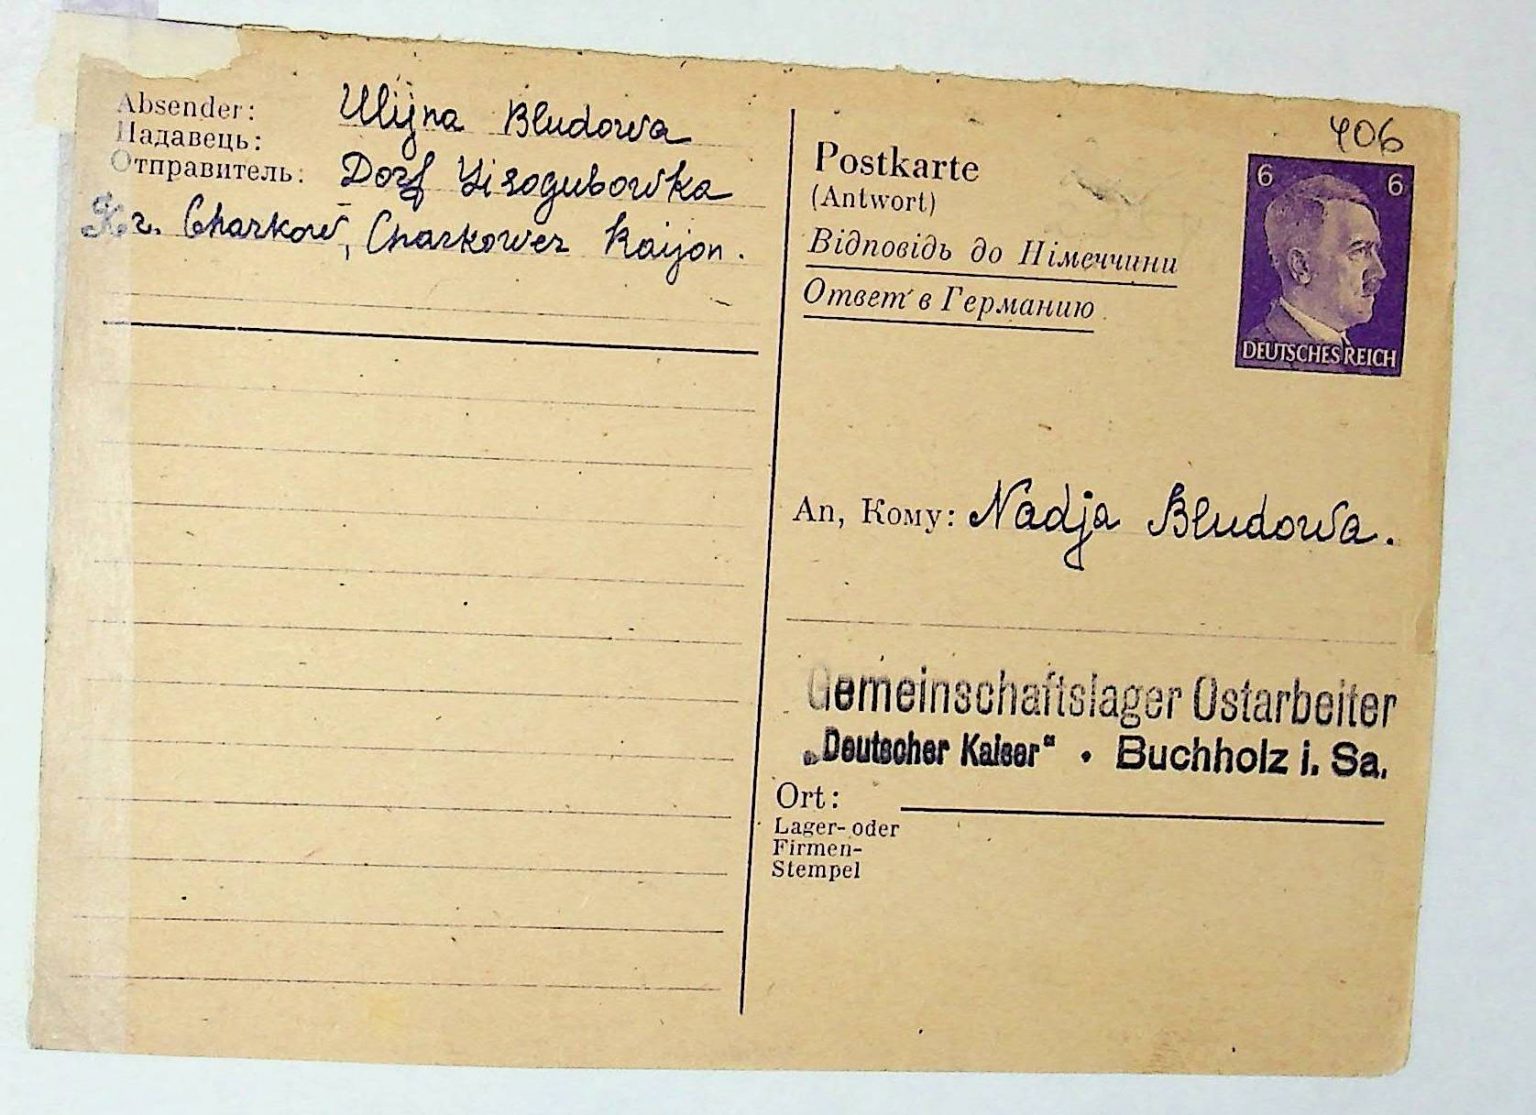 Absender:
Надавець:
Отправитель:
Ulijna Bludowa
Dorf Lisogubowka
Kr. Charkow, Charkower Raijon.
Postkarte
(Antwort)
Відповідь до Німеччини
Ответ в Германию
406
6 6
DEUTSCHES REICH
An, Кому: Nadja Bludowa.
Gemeinschaftslager Ostarbeiter
„Deutscher Kaiser“ • Buchholz i. Sa.
Ort:
Lager- oder
Firmen-
Stempel